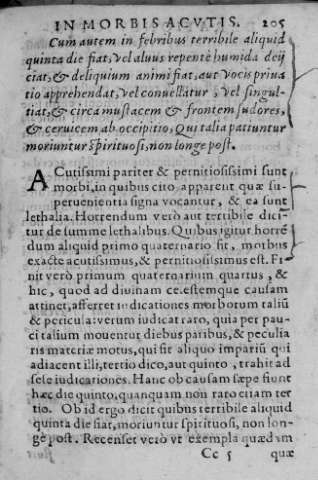 IN MORBIS ACVTIS. 205
Cum autem in febribus terribile aliquid
quinta die fiat, vel aluus repentè humida deij
ciat, & deliquium animi fiat, aut vocis priua
tio apprehendat, vel conuellatur, vel singul-
tiat, & circa mustacem & frontem sudores,
& ceruicem ab occipitio, Qui talia patiuntur
moriuntur spirituosi, non longe post.
ACutissimi pariter & pernitiosissimi sunt
morbi, in quibus citò apparent quæ su-
peruenientia signa vocantur, & ea sunt
lethalia. Horrendum verò aut terribile dici-
tur de summe lethalibus. Quibus igitur horrē
dum aliquid primo quaternario fit, morbus
exacte acutissimus, & pernitiosissimus est. Fi-
nit verò primum quaternarium quartus, &
hic, quod ad diuinam cælestemque causam
attinet, afferret iudicationes morborum taliū
& pericula: verum iudicat raro, quia per pau-
ci talium mouentur diebus paribus, & peculia
ris materiæ motus, qui fit aliquo impariū qui
adiacent illi, tertio dico, aut quinto, trahit ad
sese iudicationes. Hanc ob causam sæpe fiunt
hæc die quinto, quanquam non raro etiam ter
tio. Ob id ergo dicit quibus terribile aliquid
quinta die fiat, moriuntur spirituosi, non lon-
gè post. Recenset verò vt exempla quædam
Cc 5 quæ